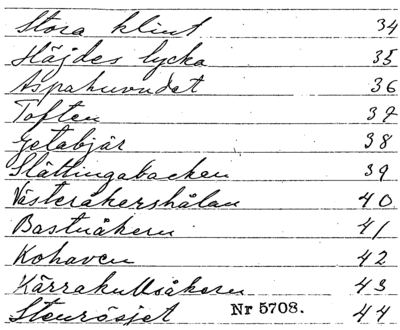 Stora klint 34
Häjdes lycka 35
Aspahuvudet 36
Toften 37
Getabjär 38
Slättingabacken 39
Västeråkershålan 40
Bastuåkern 41
Kohaven 42
Kärrakullsåkern 43
Stenrösjet Nr 5708. 44